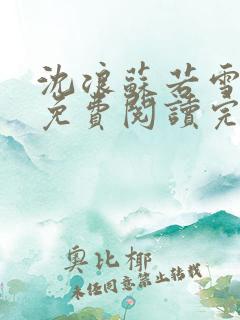 沈浪蘇若雪
免費閱讀完
奧比椰
未經同意禁止轉載